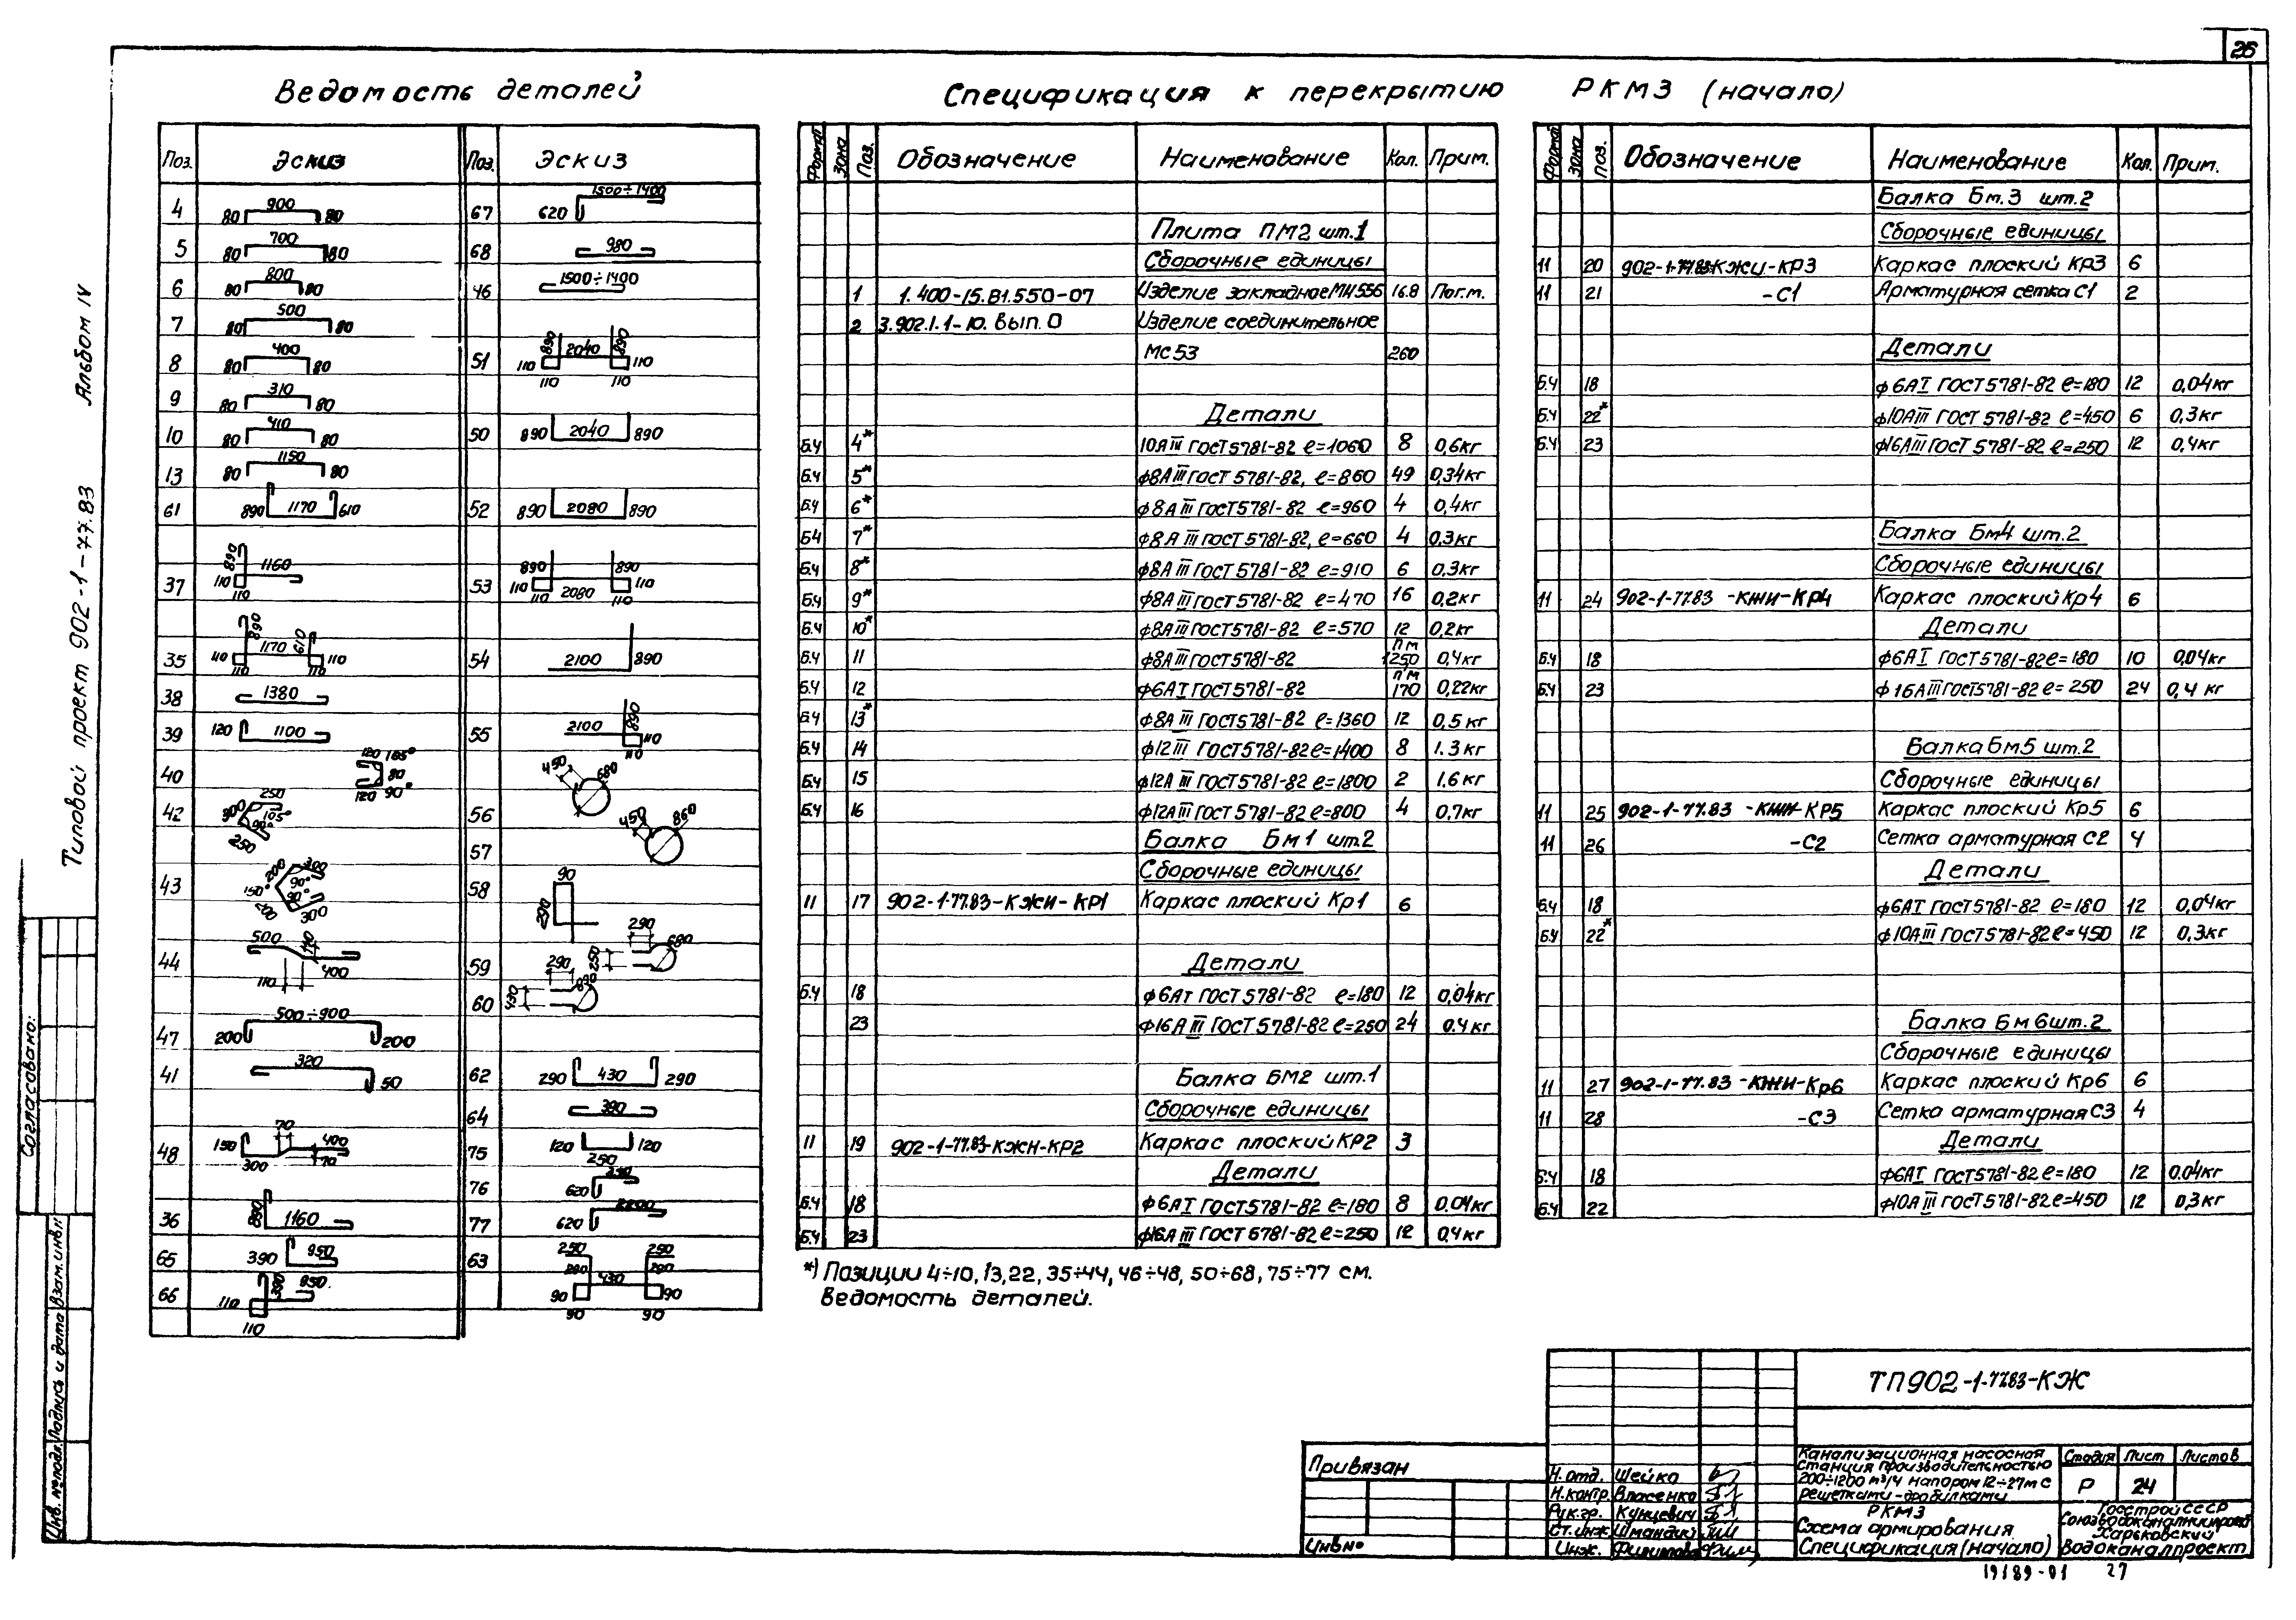 26
Ведомость деталей
Спецификация к перекрытию РКМ3 (начало)
Типовой проект 902-1-77.83 Альбом IV
Поз. Эскиз Поз. Эскиз
4 80 900 80
5 80 700 80
6 80 800 80
7 80 500 80
8 80 400 80
9 80 310 80
10 80 410 80
13 80 1150 80
61 890 1170 610
37 890 1160 110 110
35 890 1170 610 110 110 110 110
38 1380
39 120 1100
40 120 105° 80 120 90°
42 250 900 105° 90° 250
43 200 300 90° 150° 90° 200 300
44 500 110 400
47 200 500÷900 200
41 320 50
48 150 70 400 300 70
36 890 1160
65 390 950
66 390 950 110 110
67 620 1500÷1400
68 980
46 1500÷1400
51 890 2040 890 110 110 110 110
50 890 2040 890
52 890 2080 890
53 890 890 110 110 110 2080 110
54 2100 890
55 2100 890 110 110
56 450 680
57 450 860
58 90 290
59 290 250 680
60 290 430
62 290 430 290
64 390
75 120 250 120
76 620
77 620 2200
63 250 250 290 290 430 90 90 90 90
Формат Зона Поз. Обозначение Наименование Кол. Прим.
Плита ПМ2 шт.1
Сборочные единицы
1 1.400-15.В1.550-07 Изделие закладное МН556 16.8 Пог.м.
2 3.902.1.1-10. вып.0 Изделие соединительное
МС53 260
Детали
Б.ч 4* 10АIII ГОСТ5781-82 ℓ=1060 8 0,6кг
Б.ч 5* ф8АIII ГОСТ 5781-82, ℓ=860 49 0,34кг
Б.ч 6* ф8АIII ГОСТ5781-82 ℓ=960 4 0,4кг
Б4 7* ф8АIII ГОСТ5781-82, ℓ=660 4 0,3кг
Б.ч 8* ф8АIII ГОСТ5781-82 ℓ=910 6 0,3кг
Б.ч 9* ф8АIII ГОСТ5781-82 ℓ=470 16 0,2кг
Б.ч 10* ф8АIII ГОСТ5781-82 ℓ=570 12 0,2кг
Б.ч 11 ф8АIII ГОСТ5781-82 пм 1250 0,4кг
Б.ч 12 ф6АI ГОСТ5781-82 п'м 170 0,22кг
Б.ч 13* ф8АIII ГОСТ5781-82 ℓ=1360 12 0,5кг
Б.ч 14 ф12III ГОСТ5781-82 ℓ=1400 8 1.3кг
Б.ч 15 ф12АIII ГОСТ5781-82 ℓ=1800 2 1.6кг
Б.ч 16 ф12АIII ГОСТ5781-82 ℓ=800 4 0,7кг
Балка Бм1 шт.2
Сборочные единицы
11 17 902-1-77.83-КЖИ-КР1 Каркас плоский Кр1 6
Детали
Б.ч 18 ф6АI ГОСТ5781-82 ℓ=180 12 0,04кг
23 ф16АIII ГОСТ5781-82 ℓ=250 24 0.4кг
Балка БМ2 шт.1
Сборочные единицы
11 19 902-1-77.83-КЖИ-КР2 Каркас плоский КР2 3
Детали
Б.ч 18 ф6АI ГОСТ5781-82 ℓ=180 8 0.04кг
Б.ч 23 ф16АIII ГОСТ 5781-82 ℓ=250 12 0,4кг
*) Позиции 4÷10, 13,22, 35÷44, 46÷48, 50÷68, 75÷77 см.
Ведомость деталей.
Формат Зона Поз. Обозначение Наименование Кол. Прим.
Балка Бм.3 шт.2
Сборочные единицы
11 20 902-1-77.83КЖИ-КР3 Каркас плоский Кр3 6
11 21 -С1 Арматурная сетка С1 2
Детали
Б.ч 18 ф6АI ГОСТ5781-82 ℓ=180 12 0,04кг
Б.ч 22* ф10АIII ГОСТ 5781-82 ℓ=450 6 0,3кг
Б.ч 23 ф16АIII ГОСТ 5781-82 ℓ=250 12 0,4кг
Балка Бм4 шт.2
Сборочные единицы
11 24 902-1-77.83 -КЖИ-КР4 Каркас плоский Кр4 6
Детали
Б.ч 18 ф6АI ГОСТ5781-82 ℓ=180 10 0,04кг
Б.ч 23 ф16АIII ГОСТ5781-82 ℓ=250 24 0,4 кг
Балка Бм5 шт.2
Сборочные единицы
11 25 902-1-77.83 -КЖИ-КР5 Каркас плоский Кр5 6
11 26 -С2 Сетка арматурная С2 4
Детали
Б.ч 18 ф6АI ГОСТ5781-82 ℓ=180 12 0,04кг
Б.ч 22* ф10АIII ГОСТ5781-82 ℓ=450 12 0,3кг
Балка Бм6 шт.2
Сборочные единицы
11 27 902-1-77.83 -КЖИ-Кр6 Каркас плоский Кр6 6
11 28 -С3 Сетка арматурная С3 4
Детали
Б.ч 18 ф6АI ГОСТ5781-82 ℓ=180 12 0.04кг
Б.ч 22 ф10АIII ГОСТ5781-82 ℓ=450 12 0,3кг
Согласовано:
Инв. №подл. Подпись и дата Взам.инв.№
Привязан
Инв №
Н.отд. Шейко
Н.контр. Власенко
Рук.гр. Кунцевич
Ст.инж. Шмандий
Инж. Филиппова
ТП902-1-77.83-КЖ
Канализационная насосная
станция производительностью
200÷1200 м³/ч напором 12÷27м с
решетками-дробилками
Стадия Лист Листов
Р 24
РКМ3
Схема армирования
Спецификация (начало)
Госстрой СССР
Союзводоканалниипроект
Харьковский
Водоканалпроект
19189-01 27